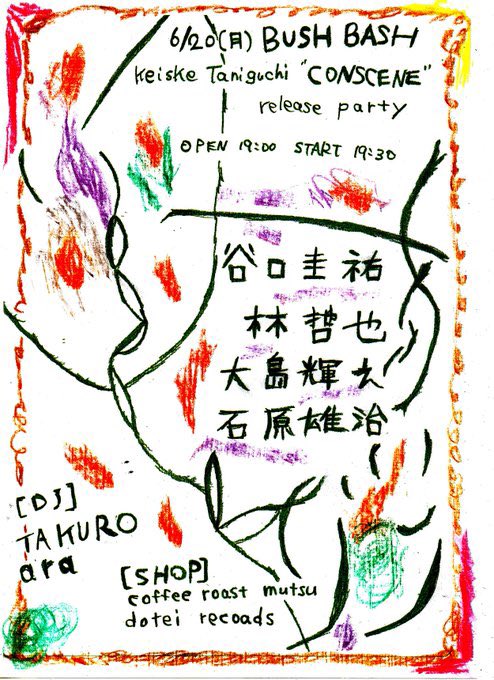 6/20(月) BUSH BASH
keiske Taniguchi "CONSCENE"
release party
OPEN 19:00 START 19:30
谷口圭祐
林哲也
大島輝之
石原雄治
[DJ]
TAKURO
ara
[SHOP]
coffee roast mutsu
dotei recoads